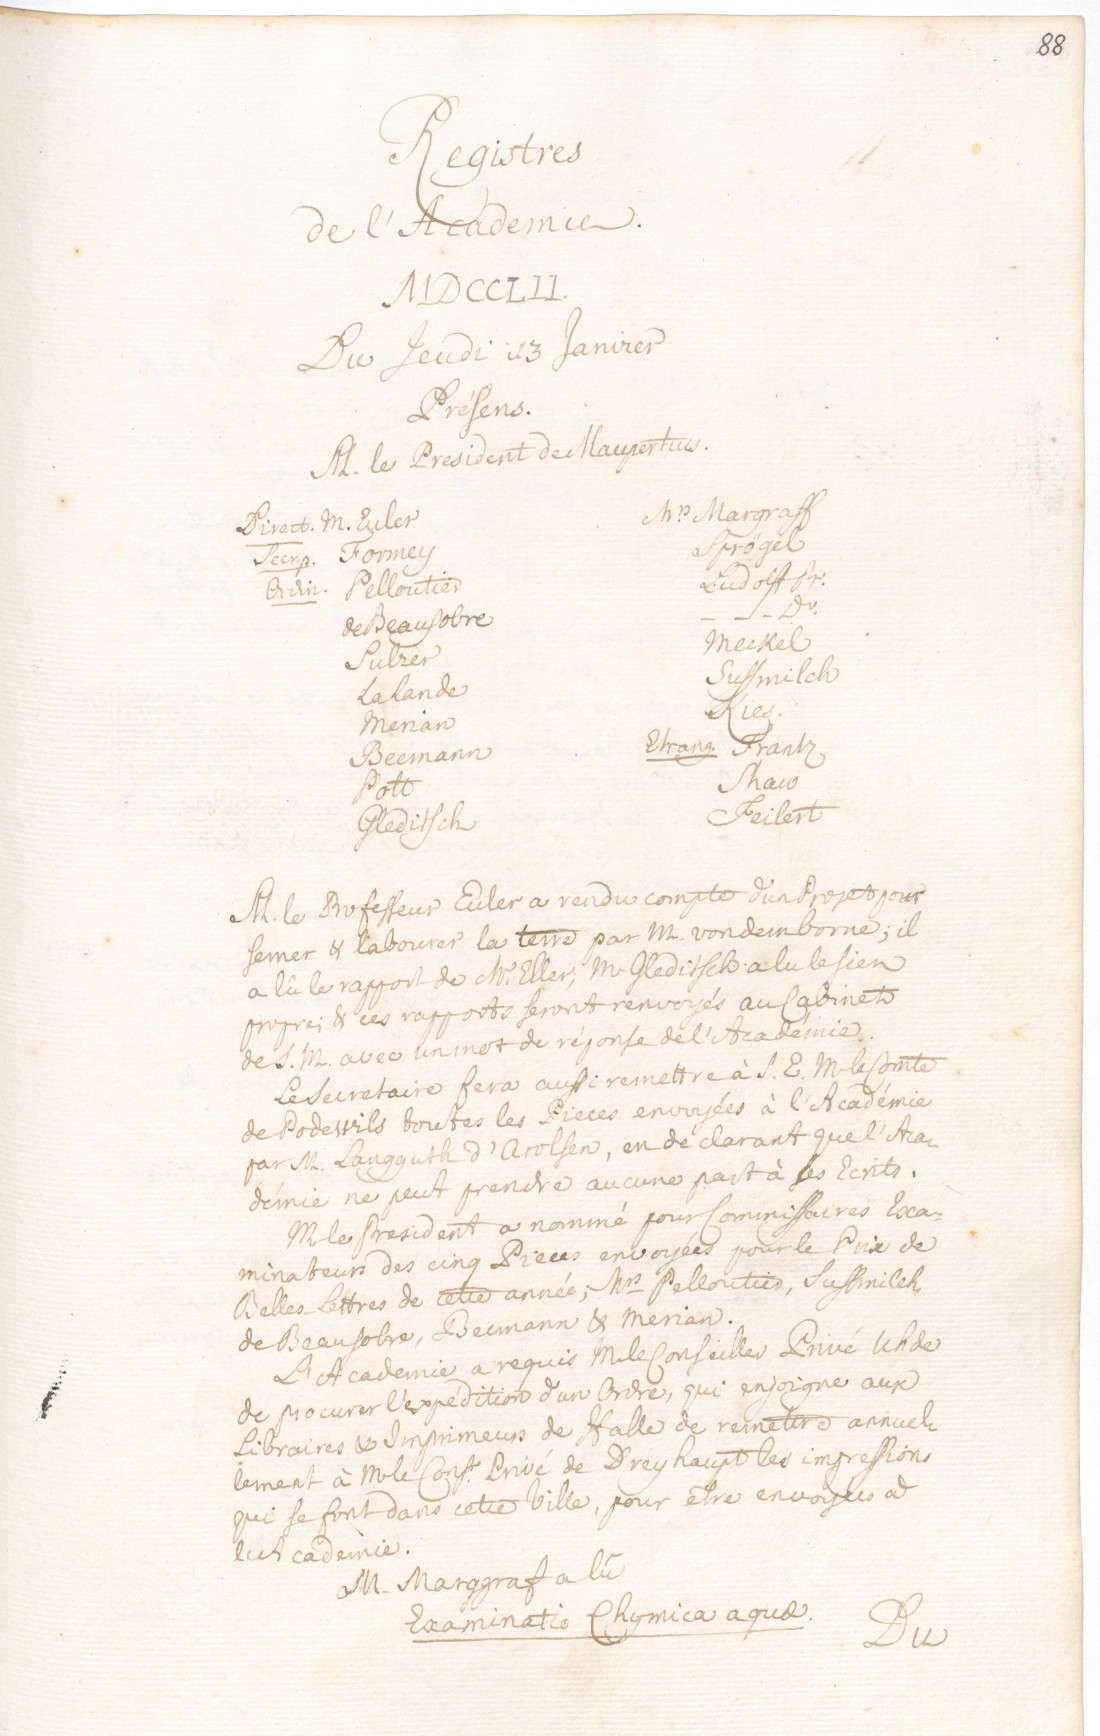 88
Registres
de l'Academie.
MDCCLII.
Du Jeudi 13 Janvier
Présens.
M. le President de Maupertuis.
Direct. M. Euler
Secr. p. Formey
Ordin. Pelloutier
de Beausobre
Sulzer
La Lande
Merian
Becmann
Pott
Gleditsch
Mrs Margraff
Sprögel
Ludolff Pr.
_ _ _ Dr.
Meckel
Sussmilch
Kies.
Etrang. Frantz
Shaw
Feilert
M. le Professeur Euler a rendu compte d'un Projet pour
semer & labourer la terre par M. von dem borne; il
a lû le rapport de Mr. Eller; Mr Gleditsch a lu le sien
propre; & ces rapports seront renvoyés au Cabinet
de S. M. avec un mot de réponse de l'Académie.
Le Secretaire fera aussi remettre à S. E. M. le Comte
de Podewils toutes les Pieces envoyées à l'Académie
par M. Langguth d'Arolsen, en déclarant que l'Aca-
démie ne peut prendre aucune part à ses Ecrits.
M. le President a nommé pour Commissaires Exa-
minateurs des cinq Pieces envoyées pour le Prix de
Belles-Lettres de cette année, Mrs Pelloutier, Sussmilch,
de Beausobre, Becmann & Merian.
L'Academie a requis M. le Conseiller Privé Uhde
de procurer l'expédition d'un Ordre, qui enjoigne aux
Libraires & Imprimeurs de Halle de remettre annuel-
lement à M. le Cons. Privé de Dreyhaupt les impressions
qui se font dans cette Ville, pour etre envoyées à
l'Academie.
M. Marggraf a lû
Examinatio Chymica aquæ.
Du